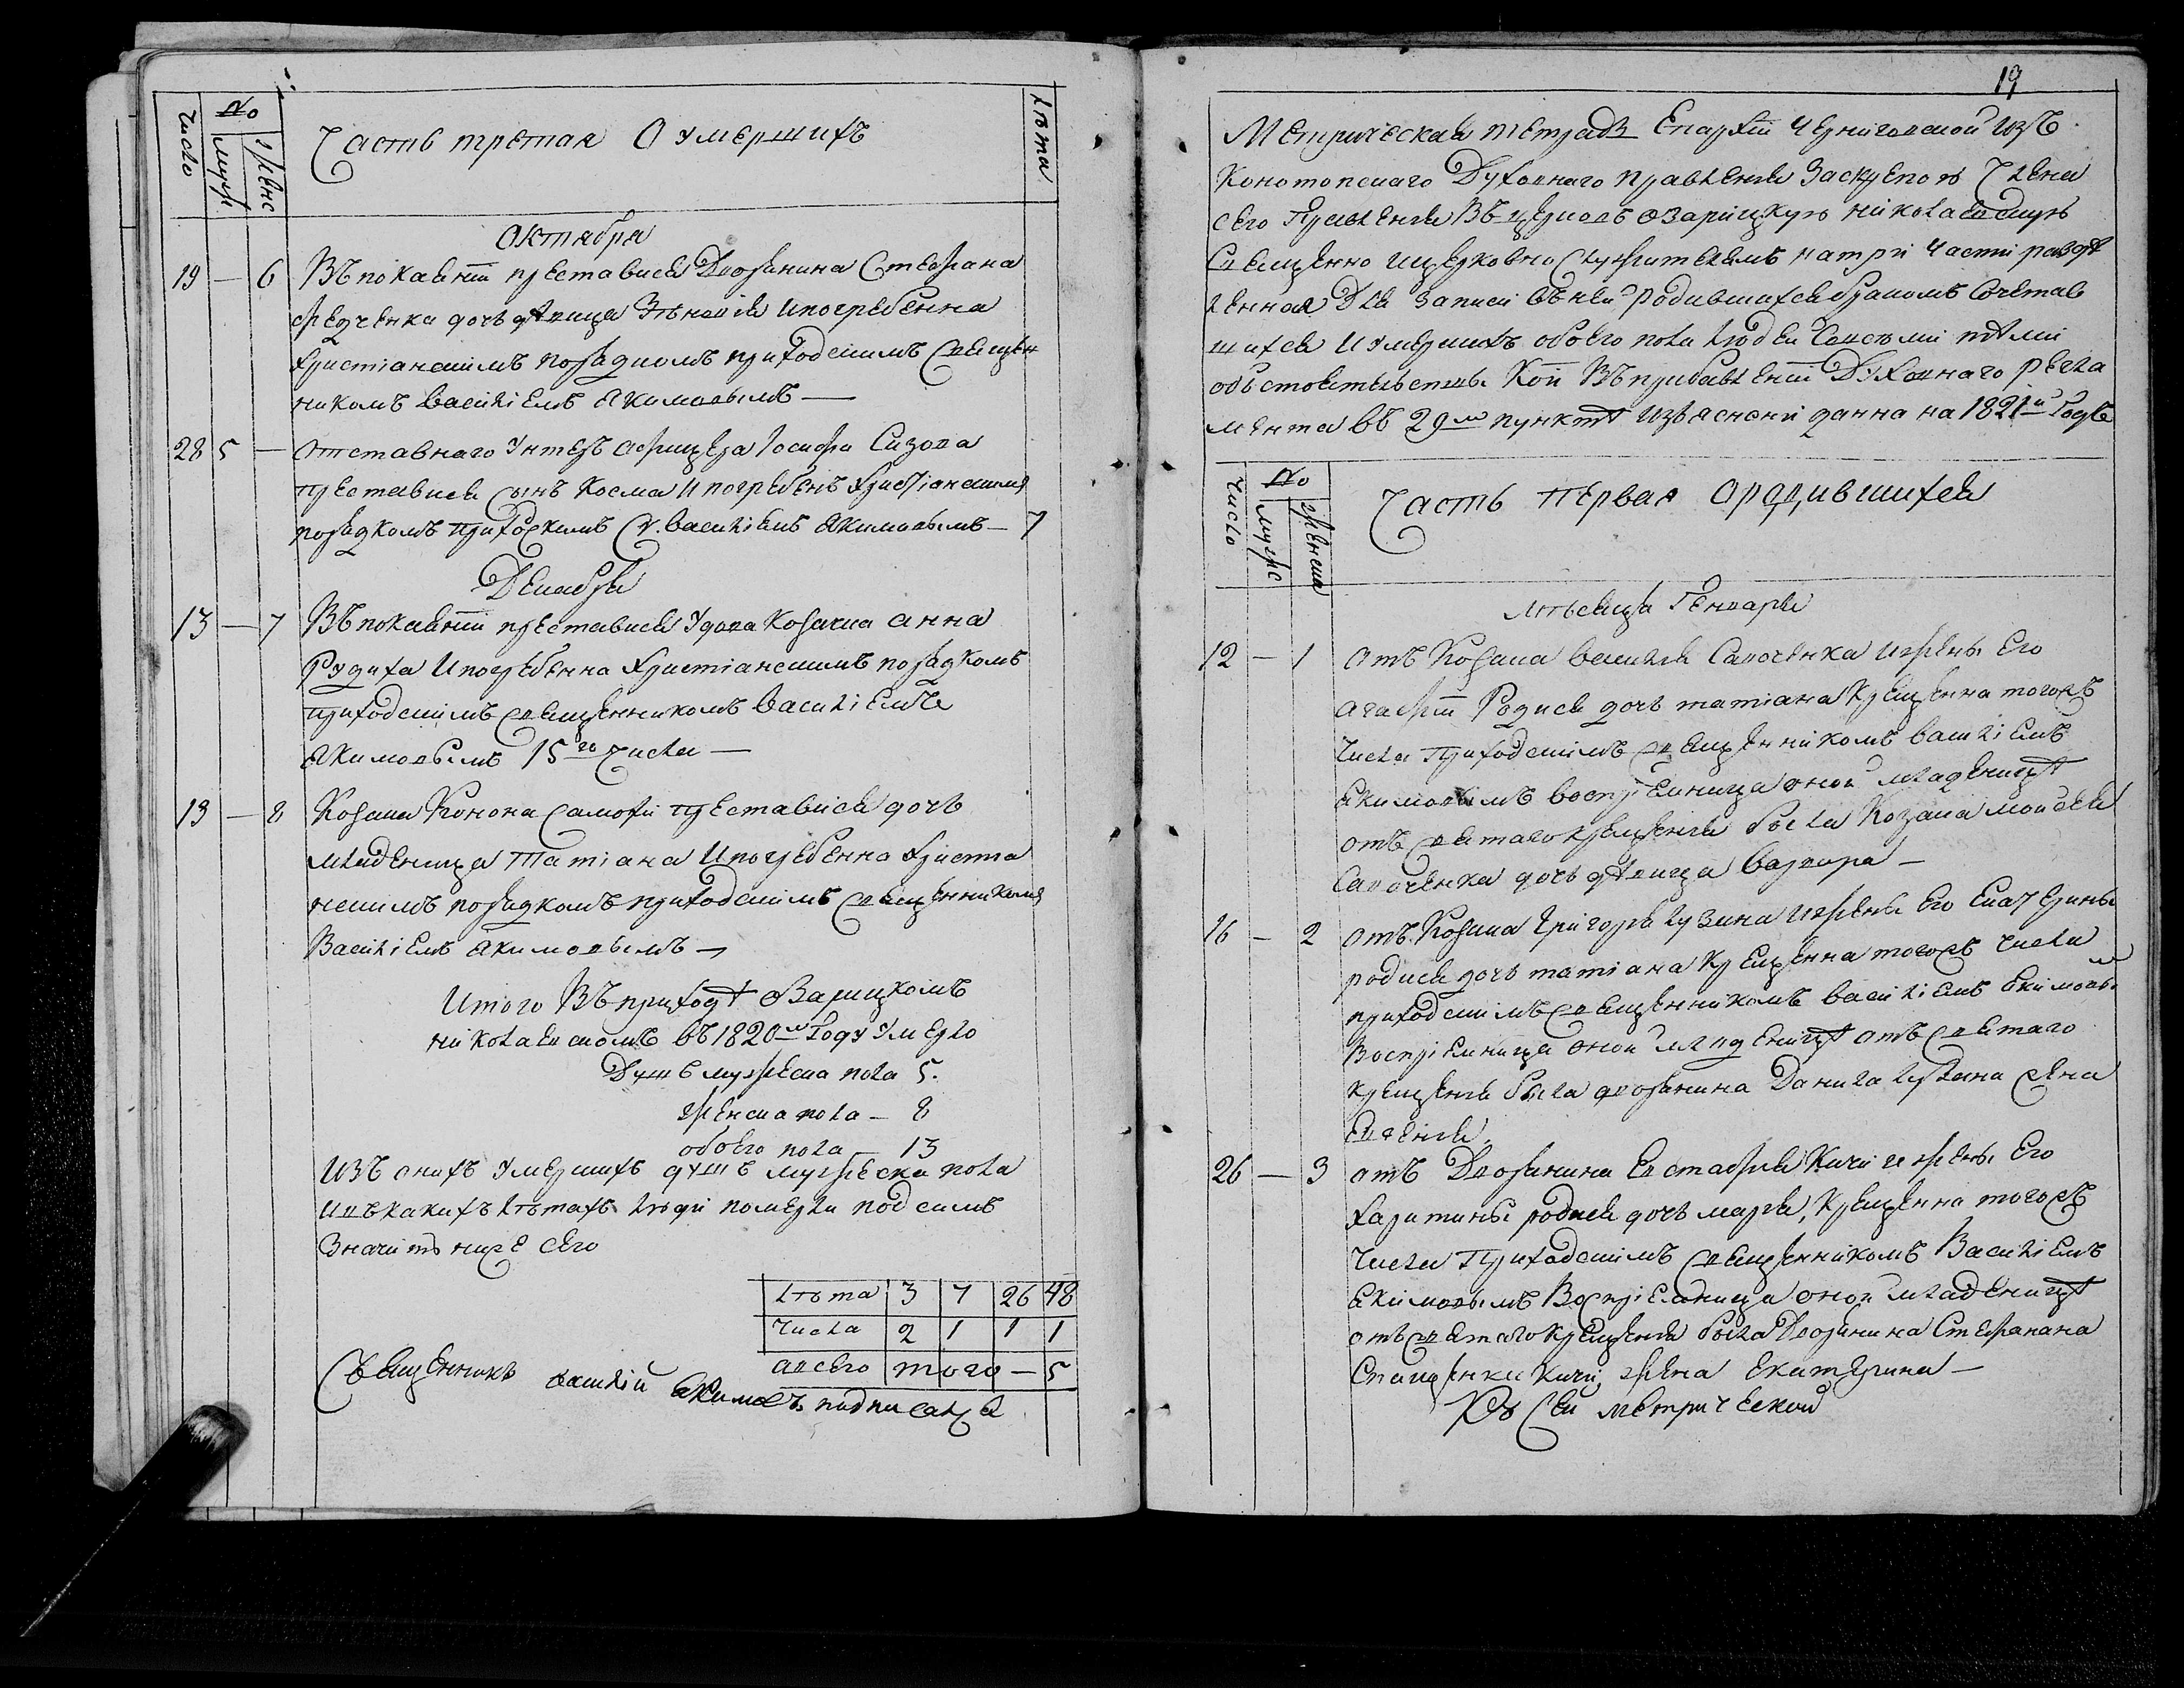 число
№
мужс
женс
Часть третая О умершихъ
лѣта
Октября
19 — 6 Въ покаянїи преставися Дворянина Стефана
Федченка дочь дѣвица Зѣновія и погребенна
христіанскимъ порядкомъ приходскимъ священ
никомъ Василіемъ Якимовымъ —
28 5 — Отставного Унтеръ офицера Іосифа Сизова
преставися сынъ Косма и погребенъ христіанскимъ
порядкомъ приходскимъ Св. Василіемъ Якимовымъ — 7
Декабря
13 — 7 Въ покаянїи преставися Удова козачка Анна
Рудиха и погребенна христіанскимъ порядкомъ
приходскимъ священникомъ Василіемъ
Якимовымъ 15го числа —
19 — 8 Козака Конона Самохи преставися дочь
младеница Татіана и погребенна христіа
нскимъ порядкомъ приходскимъ священникомъ
Василіемъ Якимовымъ —
Итого Въ приходѣ Озарицкомъ
николаевскомъ въ 1820м Году умерло
Душъ мужеска пола 5.
женска пола — 8
обоего пола — 13
Изъ онихъ умершихъ душъ мужеска пола
и въ какихъ лѣтахъ люди померли под симъ
Значитъ ниже сего
лѣта 3 7 26 48
числа 2 1 1 1
а всего того — 5
Священникъ Василій Якимовъ подписался
19
Метрическая тетрадь Епархїи Черниговской изъ
Конотопскаго Духовнаго правленія Заскрепою Члена
сего Правленія Въ церковь Озарицкую николаевскую
Священно и церковно служителямъ на три Части раздѣ
ленная Для Записи въ ней родившихся бракомъ сочетав
шихся и умершихъ обоего пола людей со всѣми тѣми
обстоятельствы Кои Въ прибавленїи Духовнаго регла
мента въ 29м пунктѣ изъяснени данна на 1821й Годъ
число
№
мужс
женска
Часть первая о родившихся
мѣсяца Генваря
12 — 1 отъ Козака Василія Сапоченка и жены Его
Агафїи Родися дочь татіана крещенна тогожъ
числа приходскимъ священникомъ Василіемъ
Якимовымъ воспріемница оной младеницѣ
отъ святаго крещенія была Козака Моисея
Сапоченка дочь дѣвица Варвара —
16 — 2 отъ Козака Григорія Лузина и жены Его Екатерины
родися дочь татіана крещенна тогожъ числа
приходскимъ священникомъ Василіемъ Якимовым
Воспріемница оной младеницѣ отъ святаго
крещенія была дворянина Данила жена
Евгенія.
26 — 3 отъ Дворянина Евстафія Качи и жены Его
Харитины родися дочь марія, крещенна тогожъ
числа Приходскимъ священникомъ Василіемъ
Якимовымъ Воспріемница оной младеницѣ
отъ святаго крещенія была Дворянина Стефана
Качи жена Екатерина —
Къ Сей метрической